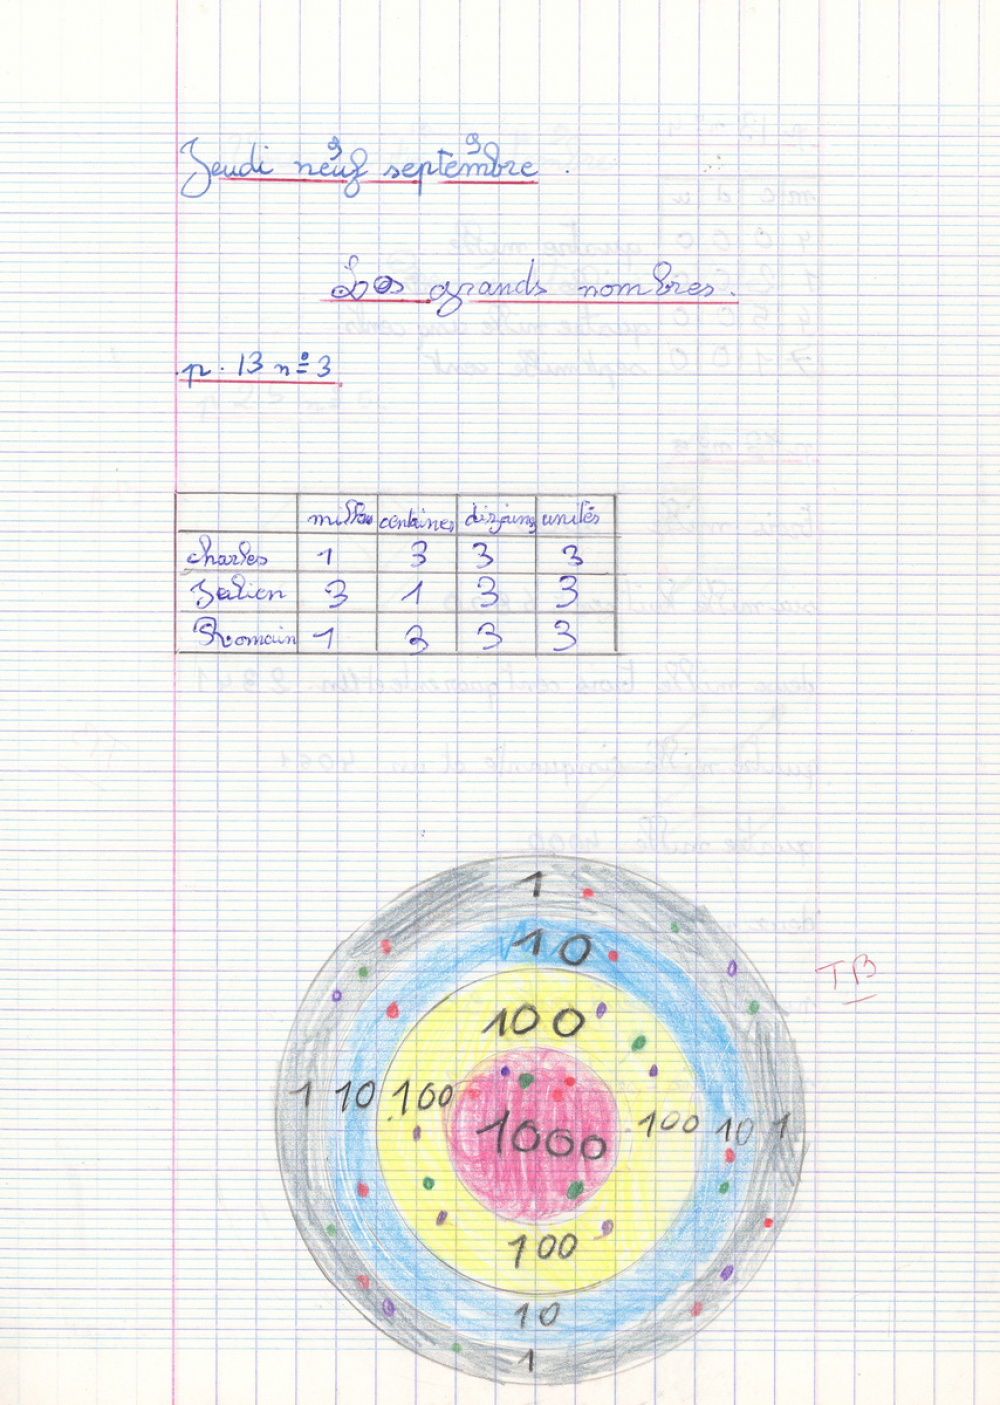 9 9
Jeudi neuf septembre.
Les grands nombres.
p. 13 n° 3
milliers centaines dizaines unités
Charles 1 3 3 3
Julien 3 1 3 3
Romain 1 3 3 3
1
10
TB
100
1 10 100 1000 100 10 1
100
10
1